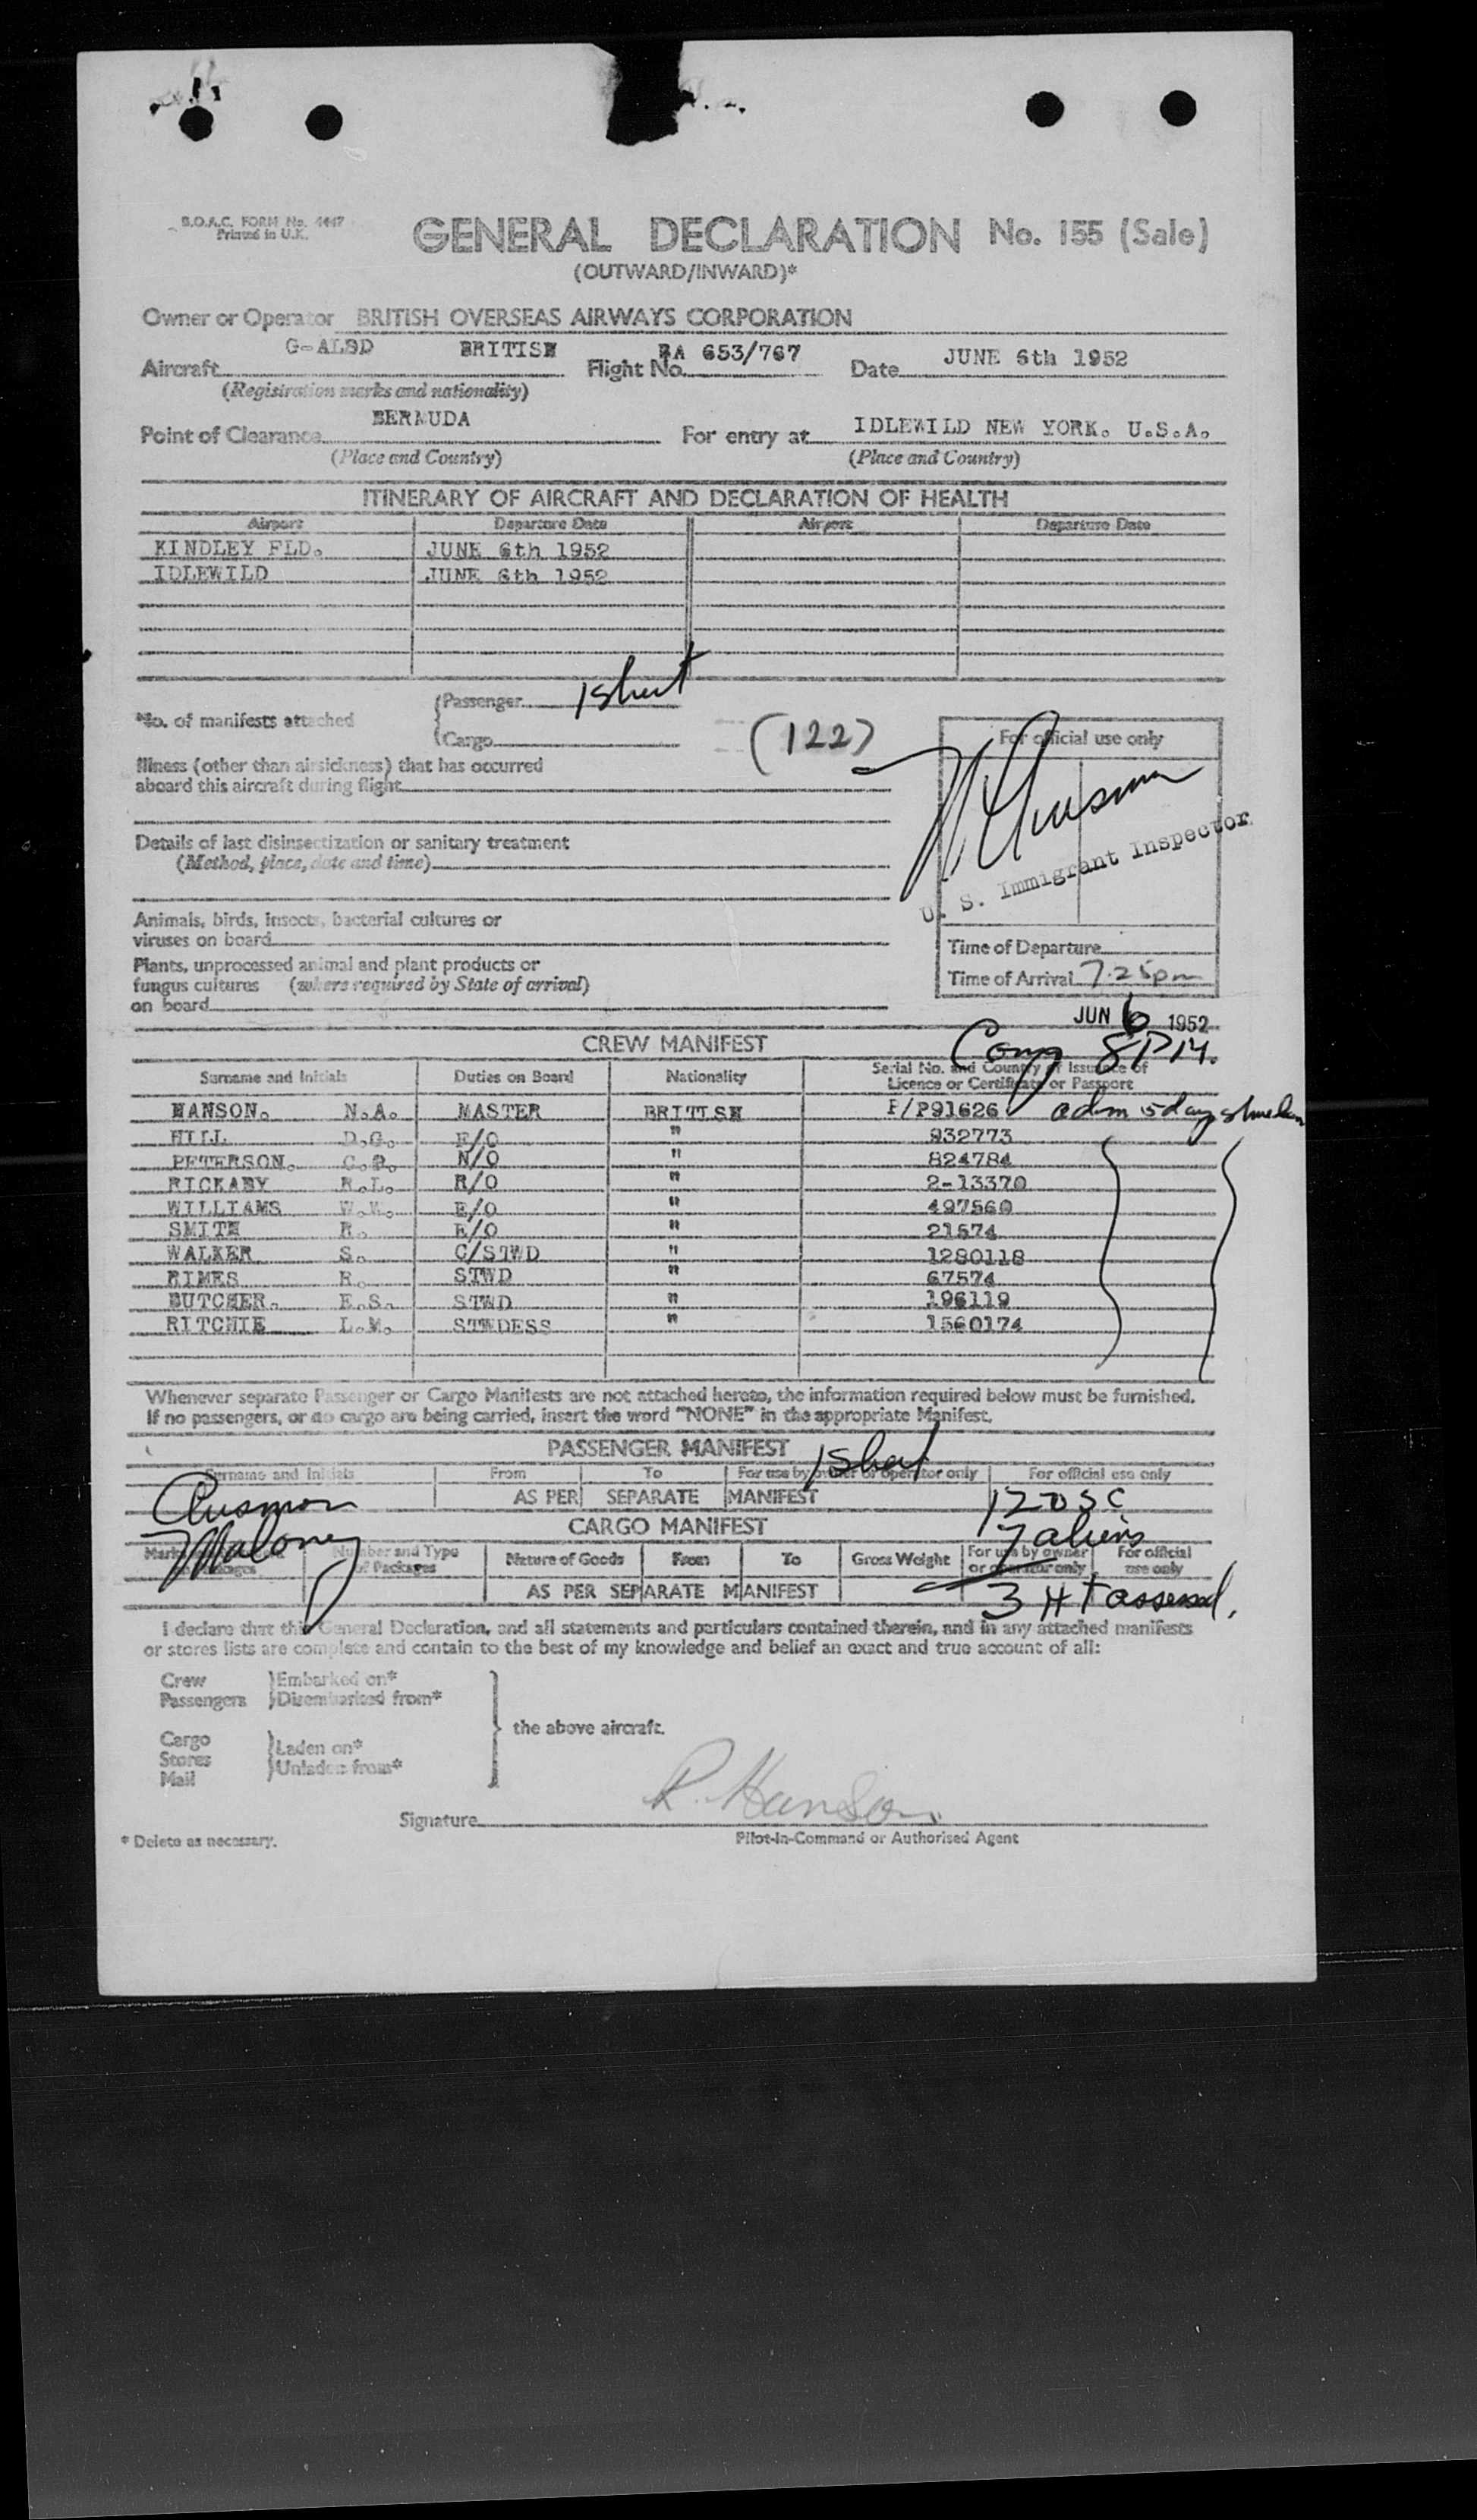 B.O.A.C. FORM No. 4447
Printed in U.K.
GENERAL DECLARATION No. 155 (Sale)
(OUTWARD/INWARD)*
Owner or Operator BRITISH OVERSEAS AIRWAYS CORPORATION
Aircraft G-ALSD BRITISH Flight No. BA 653/767 Date JUNE 6th 1952
(Registration marks and nationality)
Point of Clearance BERMUDA For entry at IDLEWILD NEW YORK. U.S.A.
(Place and Country) (Place and Country)
ITINERARY OF AIRCRAFT AND DECLARATION OF HEALTH
Airport Departure Date Airport Departure Date
KINDLEY FLD. JUNE 6th 1952
IDLEWILD JUNE 6th 1952
*No. of manifests attached
Passenger 1 sheet
Cargo
(122)
For official use only
Illness (other than airsickness) that has occurred
aboard this aircraft during flight
Details of last disinsectization or sanitary treatment
(Method, place, date and time)
U. S. Immigrant Inspector
Animals, birds, insects, bacterial cultures or
viruses on board
Time of Departure
Plants, unprocessed animal and plant products or
fungus cultures (where required by State of arrival)
on board
Time of Arrival 7.25pm
JUN 6 1952
CREW MANIFEST
Comp 8PM.
Surname and Initials Duties on Board Nationality Serial No. and Country of Issuance of
Licence or Certificate or Passport
HANSON. N.A. MASTER BRITISH P/P91626 adm 5 days
HILL D.G. F/O " 932773
PETERSON. N/O " 824784
RICKABY R.L. R/O " 2-13370
WILLIAMS W.W. E/O " 497560
SMITH R. E/O " 21574
WALKER S. C/STWD " 1280118
RIMES R. STWD " 67574
BUTCHER. E.S. STWD " 196119
RITCHIE L.M. STWDESS " 1560174
Whenever separate Passenger or Cargo Manifests are not attached hereto, the information required below must be furnished.
If no passengers, or no cargo are being carried, insert the word "NONE" in the appropriate Manifest.
PASSENGER MANIFEST 1 Sheet
Surname and Initials From To For use by owner or operator only For official use only
AS PER SEPARATE MANIFEST
CARGO MANIFEST
7 aliens
Maloney
Number and Type
of Packages
Nature of Goods From To Gross Weight For use by owner
or operator only
For official
use only
AS PER SEPARATE MANIFEST
3 H T assessed.
I declare that this General Declaration, and all statements and particulars contained therein, and in any attached manifests
or stores lists are complete and contain to the best of my knowledge and belief an exact and true account of all:
Crew
Passengers
Embarked on*
Disembarked from*
Cargo
Stores
Mail
Laden on*
Unladen from*
the above aircraft.
Signature R. Hanson
* Delete as necessary. Pilot-in-Command or Authorised Agent